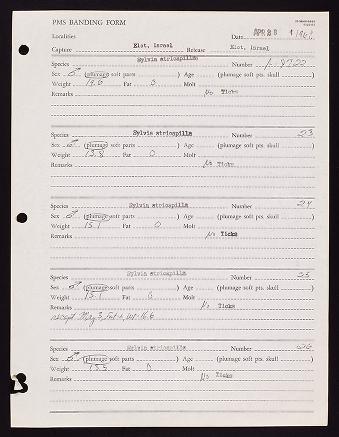 PMS BANDING FORM
Localities Date APR 28 1968
Capture Eiat, Israel Release Eiat, Israel
Species Sylvia atricapilla Number
Sex ♂ (plumage soft parts ) Age (plumage soft pts. skull )
Weight 19.6 Fat 3 Molt
Remarks No Ticks
Species Sylvia atricapilla Number 23
Sex ♂ (plumage soft parts ) Age (plumage soft pts. skull )
Weight 13.8 Fat 0 Molt
Remarks No Ticks
Species Sylvia atricapilla Number 24
Sex ♂ (plumage soft parts ) Age (plumage soft pts. skull )
Weight 15.1 Fat 0 Molt
Remarks No Ticks
Species Sylvia atricapilla Number 25
Sex ♂ (plumage soft parts ) Age (plumage soft pts. skull )
Weight 13.1 Fat 0 Molt
Remarks No Ticks
recapt May 3, wt. 16.6
Species Sylvia atricapilla Number 26
Sex ♂ (plumage soft parts ) Age (plumage soft pts. skull )
Weight 13.5 Fat 0 Molt
Remarks No Ticks